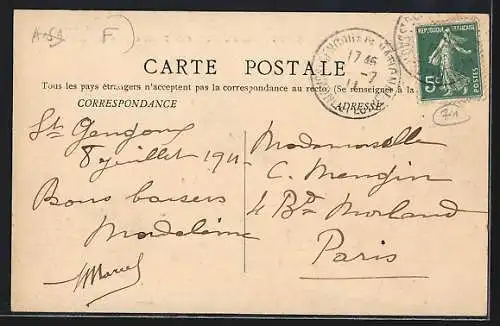 A-SA F.
CARTE POSTALE
Tous les pays étrangers n'acceptent pas la correspondance au recto. (Se renseigner à la
CORRESPONDANCE
ADRESSE
17 45
-7
11
RÉPUBLIQUE FRANÇAISE
5c
POSTES
St Gengoux
8 juillet 1911
Bons baisers
Madeleine
Marcel
Mademoiselle
C. Mengin
4 Bd Morland
Paris